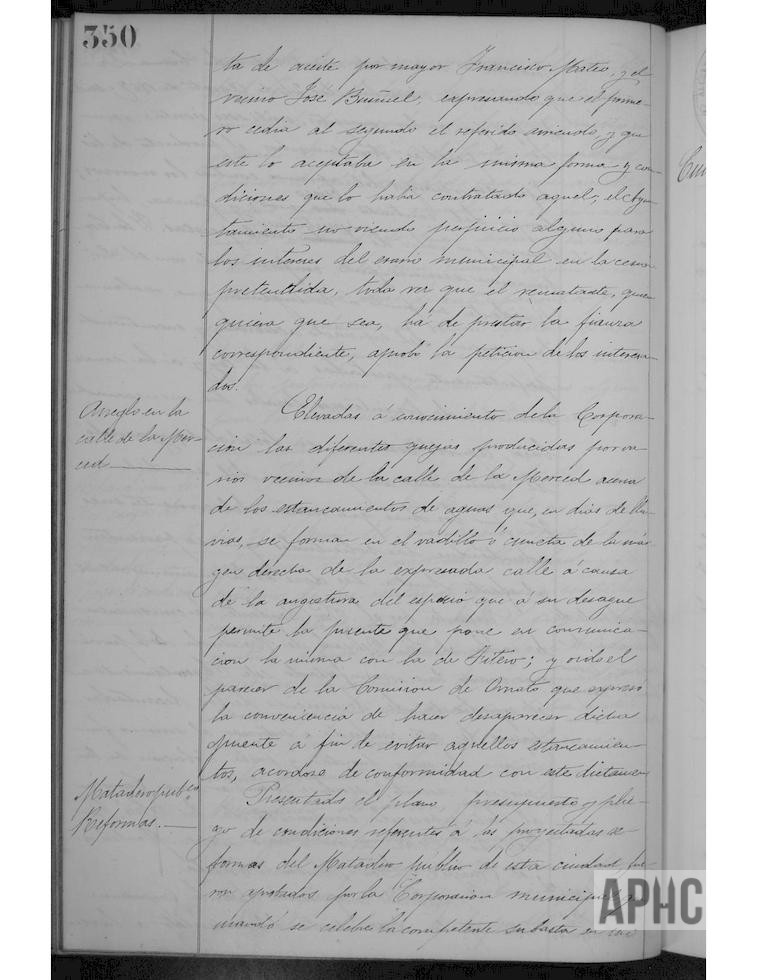 350
ta de aceite por mayor Francisco Mateo, y el
vecino José Buñuel, expresando que el prime-
ro cedia al segundo el referido arriendo, y que
este lo aceptaba en la misma forma y con-
diciones que lo habia contratado aquel; el Ayun-
tamiento no viendo perjuicio alguno para
los intereses del erario municipal en la cesion
pretendida, toda vez que el rematante, quien
quiera que sea, ha de prestar la fianza
correspondiente, aprobó la peticion de los interesa-
dos.
Arreglo en la
calle de la Mer-
ced
Elevadas á conocimiento de la Corpora-
cion las diferentes quejas producidas por va-
rios vecinos de la calle de la Merced acerca
de los estancamientos de aguas que, en dias de llu-
vias, se forman en el vadillo ó cuneta de la már-
gen derecha de la expresada calle á causa
de la angostura del espacio que á su desague
permite la puente que pone en comunica-
cion la misma con la de Fitero; y oido el
parecer de la Comision de Ornato que expresó
la conveniencia de hacer desaparecer dicha
puente á fin de evitar aquellos estancamien-
tos, acordose de conformidad con este dictamen
Matadero público
Reformas.
Presentados el plano, presupuesto y plie-
go de condiciones referentes á las proyectadas re-
formas del Matadero público de esta ciudad fue-
ron aprobados por la Corporacion municipal y
mandó se celebre la competente subasta en
APHC